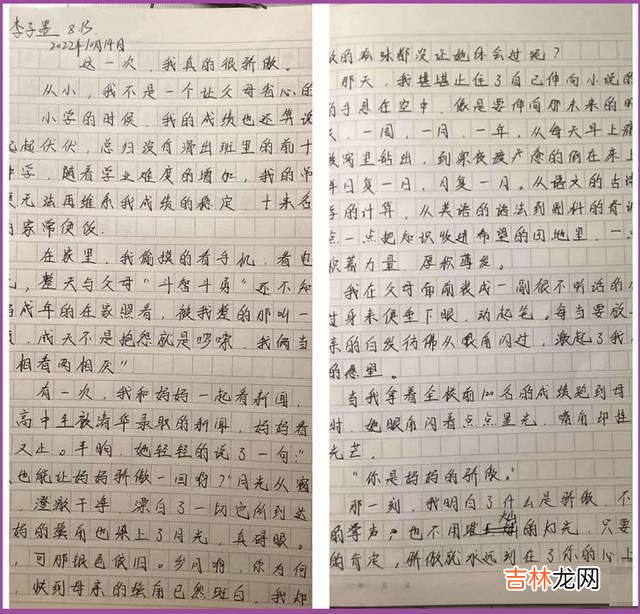 李子墨 8.13
2022年10月14日
这一次，我真的很骄傲。
从小，我不是一个让父母省心的
小学的时候，我的成绩也还算说
起起伏伏，总归没有滑出班里的前十
中学，随着学业难度的增加，我的
无法再维系我成绩的稳定 十来名
家常便饭。
在家里，我偷摸的看手机，看电
整天与父母“斗智斗勇”还不知
成年的在家照看，被我惹的那叫一
成天不是抱怨就是啰嗦，我俩当
相看两相厌”
有一次，我和妈妈一起看新闻，
高中生被清华录取的新闻，妈妈看
又止。半晌，她轻轻的说了一句：“
也能让妈妈骄傲一回啊？”月光从窗
澄澈干净 漂白了一切它所到达
妈的鬓角也染上了月光，真碍眼。
可那银色依旧。岁月啊，你为何
快到母亲的鬓角已然斑白，我却
的滋味都没让她体会过呢？
那天，我堪堪止住了自己伸向小说的
的手悬在空中，像是要伸向那未来的
一周，一月，一年，从每天斗上
被窝里钻出，到深夜疲惫的倒在床上
年日复一日，月复一月。从语文的古诗
学的计算，从英语的语法到副科的背诵
点一点把知识收进希望的田地里，一
积蓄力量，厚积薄发。
我在父母面前装成一副很不听话的
过身来便垂下眼，动起笔。每当要放
亲的白发仿佛从眼角闪过，激起了我
的愿望。
当我拿着全校前100名的成绩跑到母
时，她眼角闪着点点星光，嘴角却挂
光芒。
“你是妈妈的骄傲。”
那一刻，我明白了什么是骄傲，不
的掌声，也不用璀灿的灯光，只要
的肯定，骄傲就永远刻在了你的心上
吉林龙网